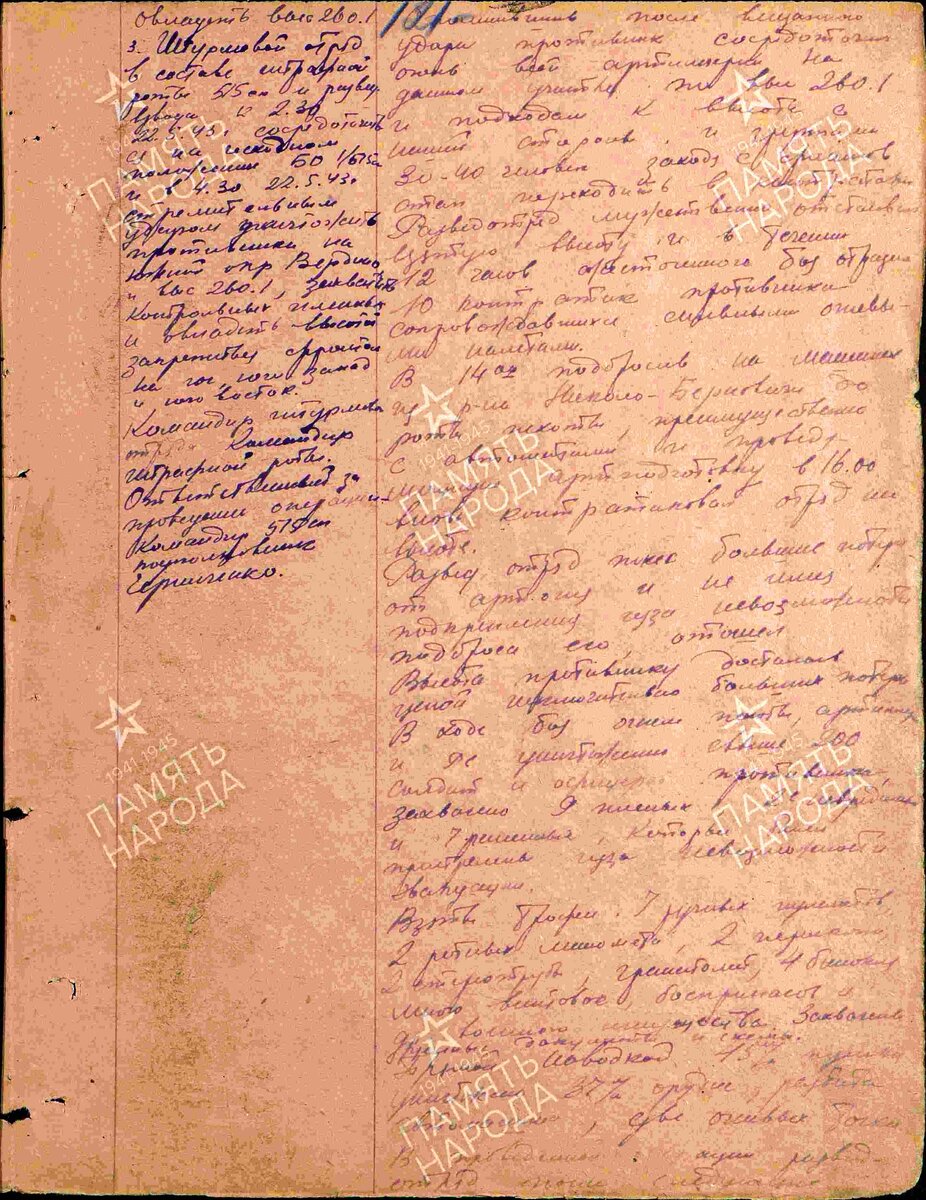 181
овладеть выс 260.1
3. Штурмовой отряд
в составе штрафной
роты 575 сп и развед
взвода к 2.30
22.5.43г. сосредоточить
ся на исходном
положение БО 1/575сп
и в 4.30 22.5.43г.
стремительным
ударом уничтожить
противника на
южной опр Вердино
и выс 260.1, захватить
контрольных пленных
и овладеть высотой
закрепиться фронтом
на юг, юго запад
и юго восток.
Командир штурмово
отряда Командир
штрафной роты.
Ответственный за
проведение операции
Командир 575 сп
подполковник
Сергиенко.
после внезапного
удара противник сосредоточил
огонь всей артиллерии на
данном участке по выс 260.1
и подходам к высоте с
нашей стороны, и группами
30-40 человек заходя с флангов
стал переходить в контратаки
Разведотряд мужественно отстаивал
взятую высоту и в течении
12 часов ожесточенного боя отразил
10 контратак противника
сопровождавшихся сильными огневы-
ми налетами.
В 14 00 подбросив на машинах
из р-на Николо-Берновичи до
роты пехоты преимущественно
с автоматами и проведя
артподготовку в 16.00
вновь контратаковал отряд на
высоте.
Развед. отряд понес большие потери
от арт.огня и не имея
подкрепления из за невозможности
подброса его, отошел
Высота противнику досталась
ценой исключительно больших потерь
В ходе боя огнем пехоты, артиллерии
и РС уничтожено свыше 200
солдат и офицеров противника,
захвачено 9 пленных,
и 7 раненных, которые были
пристрелены из за невозможности
эвакуации.
Взяты трофеи: 7 ручных пулеметов
2 ротных миномета, 2
2 стереотрубы, гранатомет, 4
много винтовок, боеприпасов и
др военного имущества. Захвачены
документы и схемы.
Прямой наводкой
уничтожено 37 % орудие, разбита
, две огневых точки
В развед-
отряд